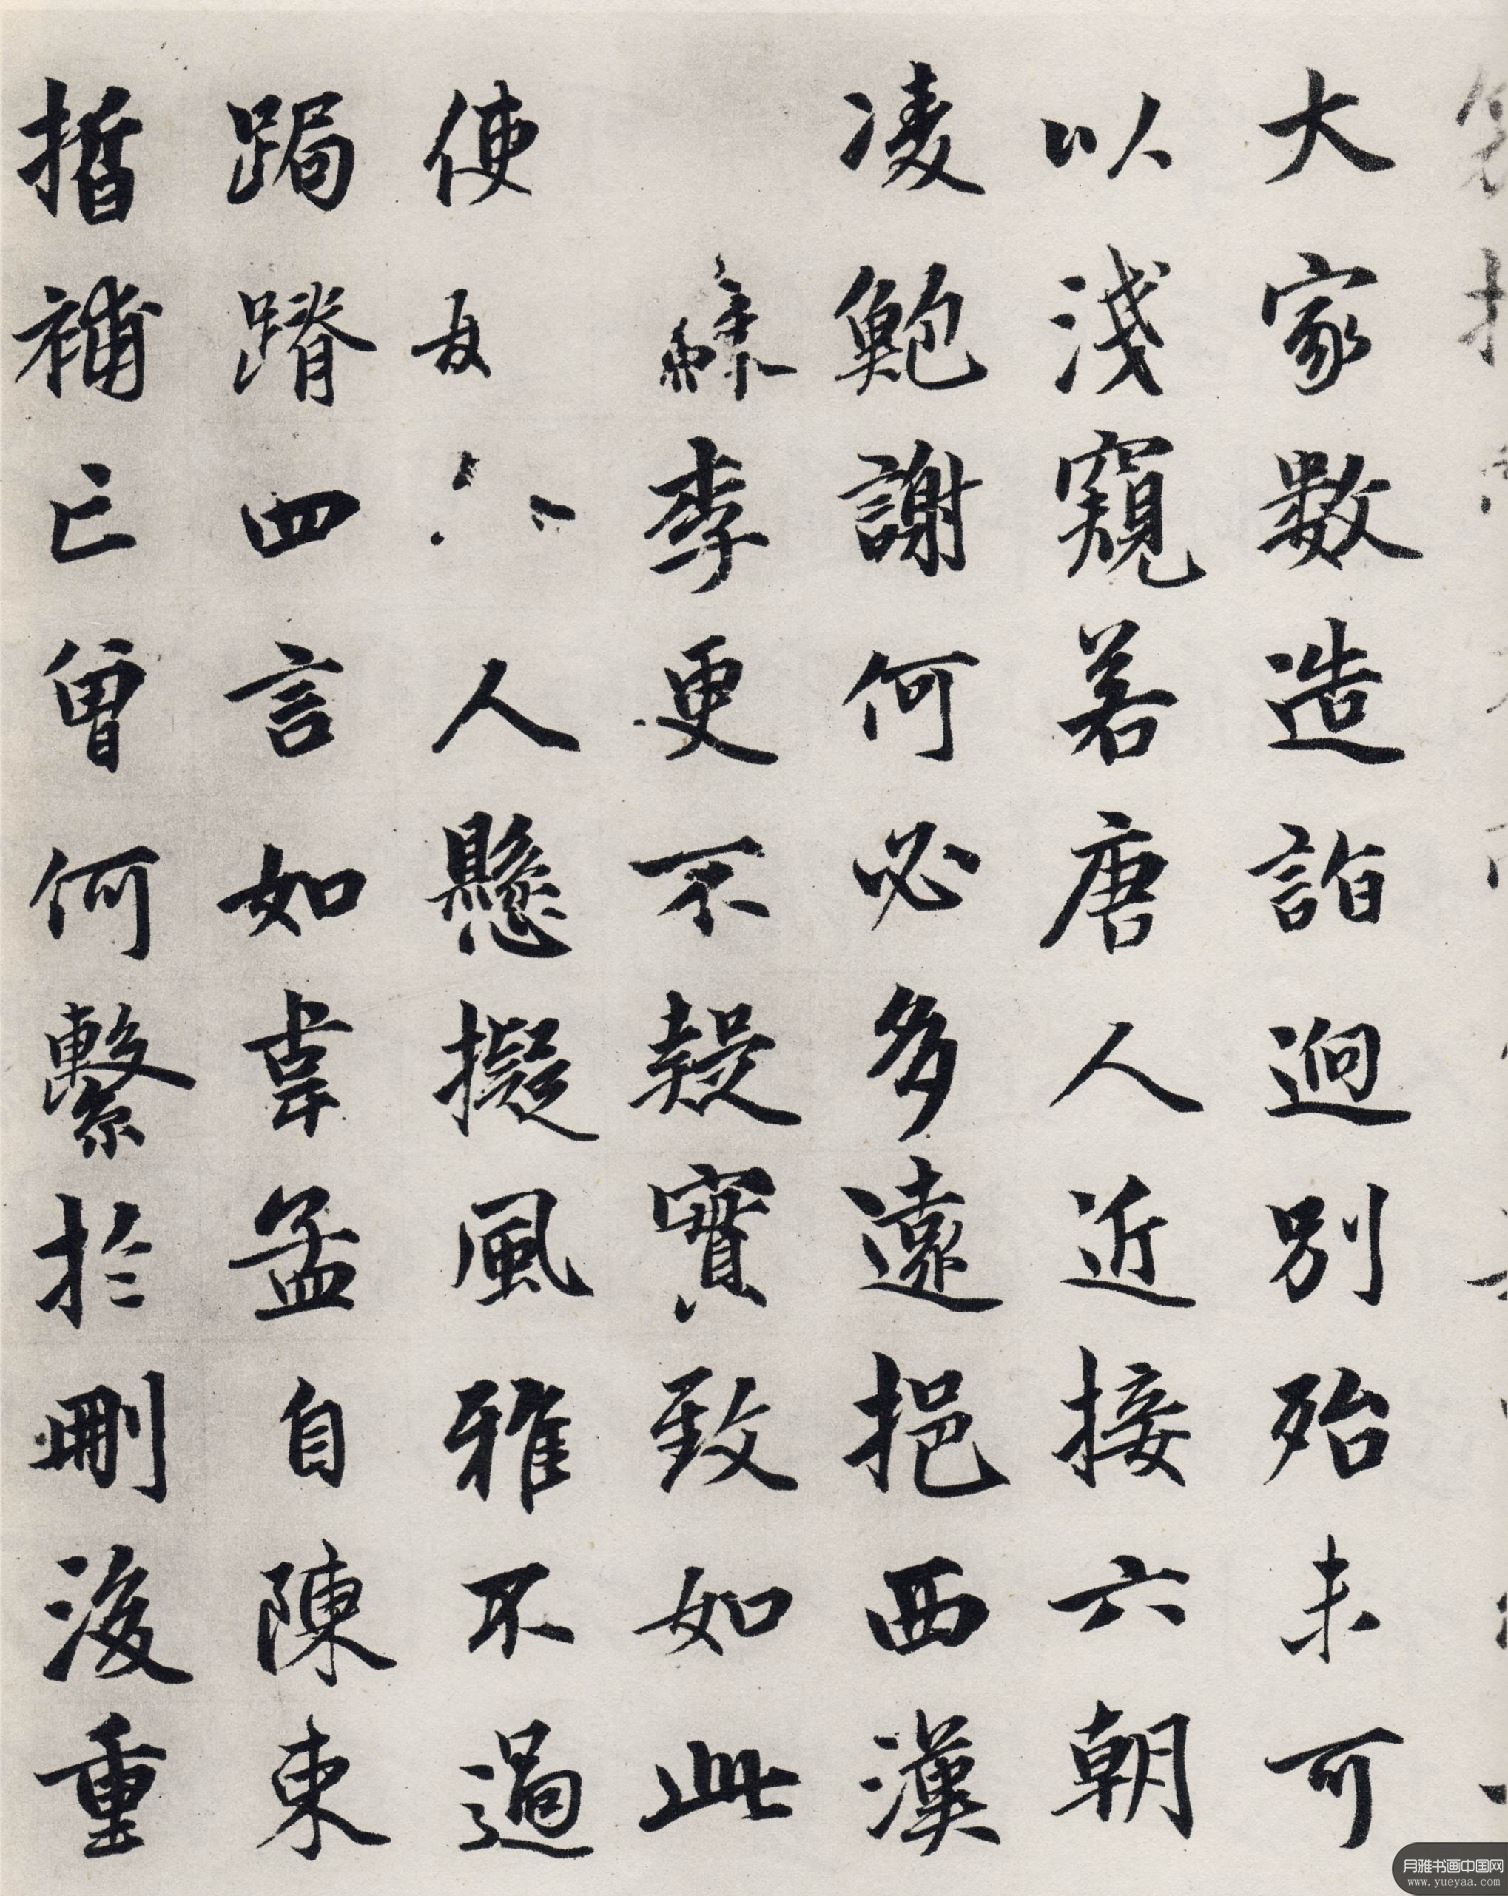 大家數造詣迥別殆未可
以淺窺若唐人近接六朝
凌鮑謝何必多遠挹西漢
蘇李更不疑實致如此
使人懸擬風雅不過
跼蹐四言如韋孟自陳束
晳補亡曾何繫於刪後重
月雅书画中国网
www.yueyaa.com